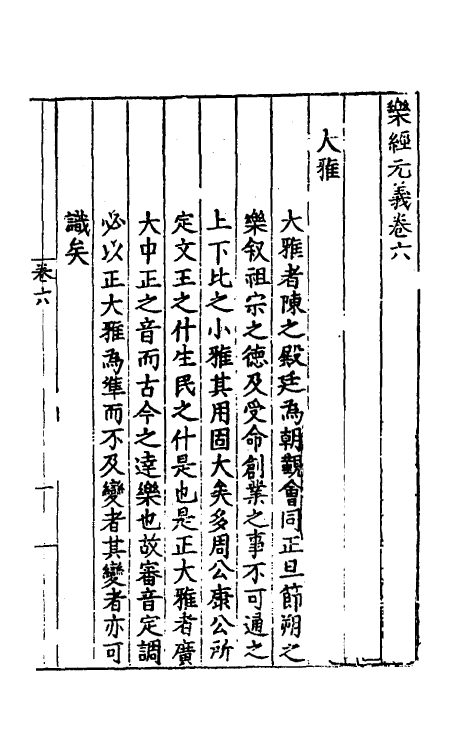 樂經元義卷六
大雅
大雅者陳之殿廷為朝覲會同正旦節朔之
樂叙祖宗之德及受命創業之事不可通之
上下比之小雅其用固大矣多周公康公所
定文王之什生民之什是也是正大雅者廣
大中正之音而古今之達樂也故審音定調
必以正大雅為準而不及變者其變者亦可
識矣
卷六
一